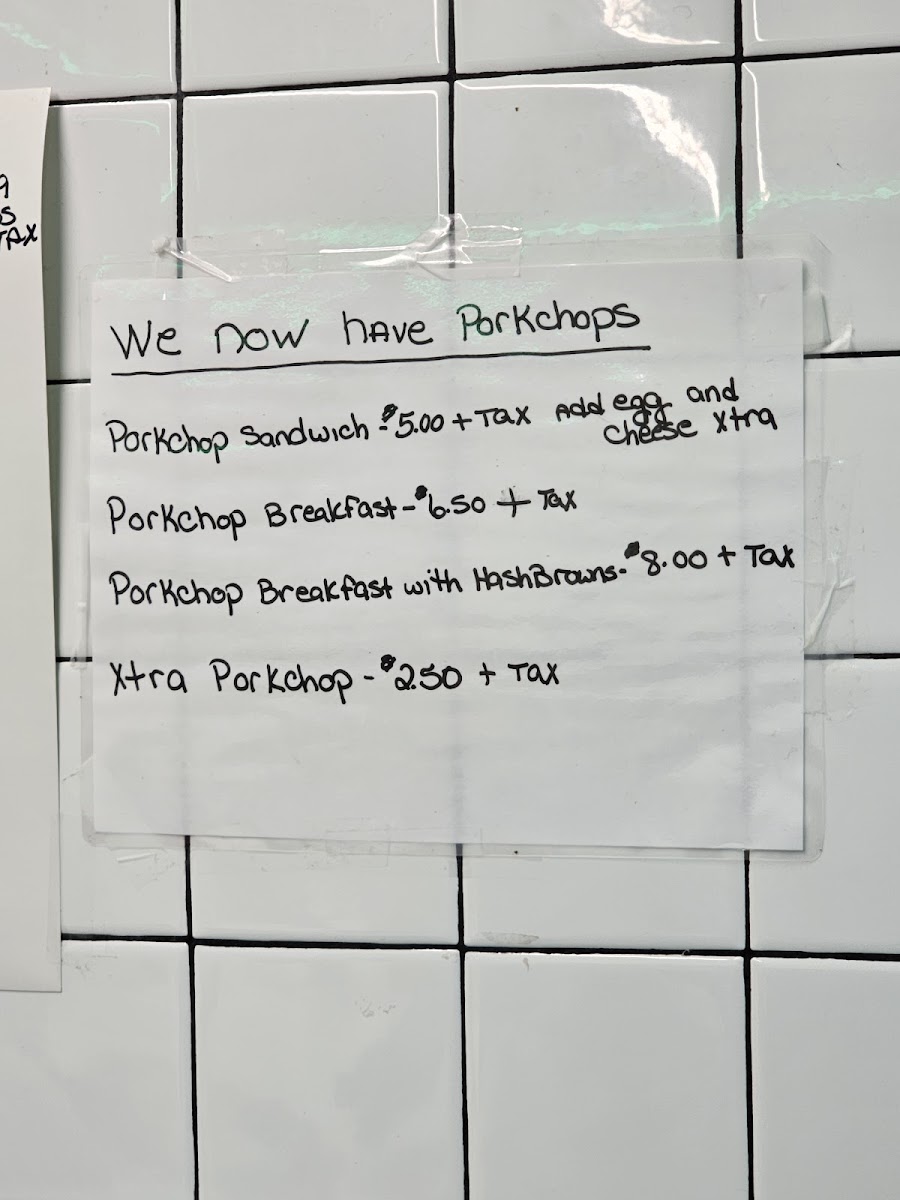 9
S
TAX
We now have Porkchops
Porkchop Sandwich - $5.00 + Tax Add egg and
cheese Xtra
Porkchop Breakfast - $6.50 + Tax
Porkchop Breakfast with HashBrowns - $8.00 + Tax
Xtra Porkchop - $2.50 + Tax